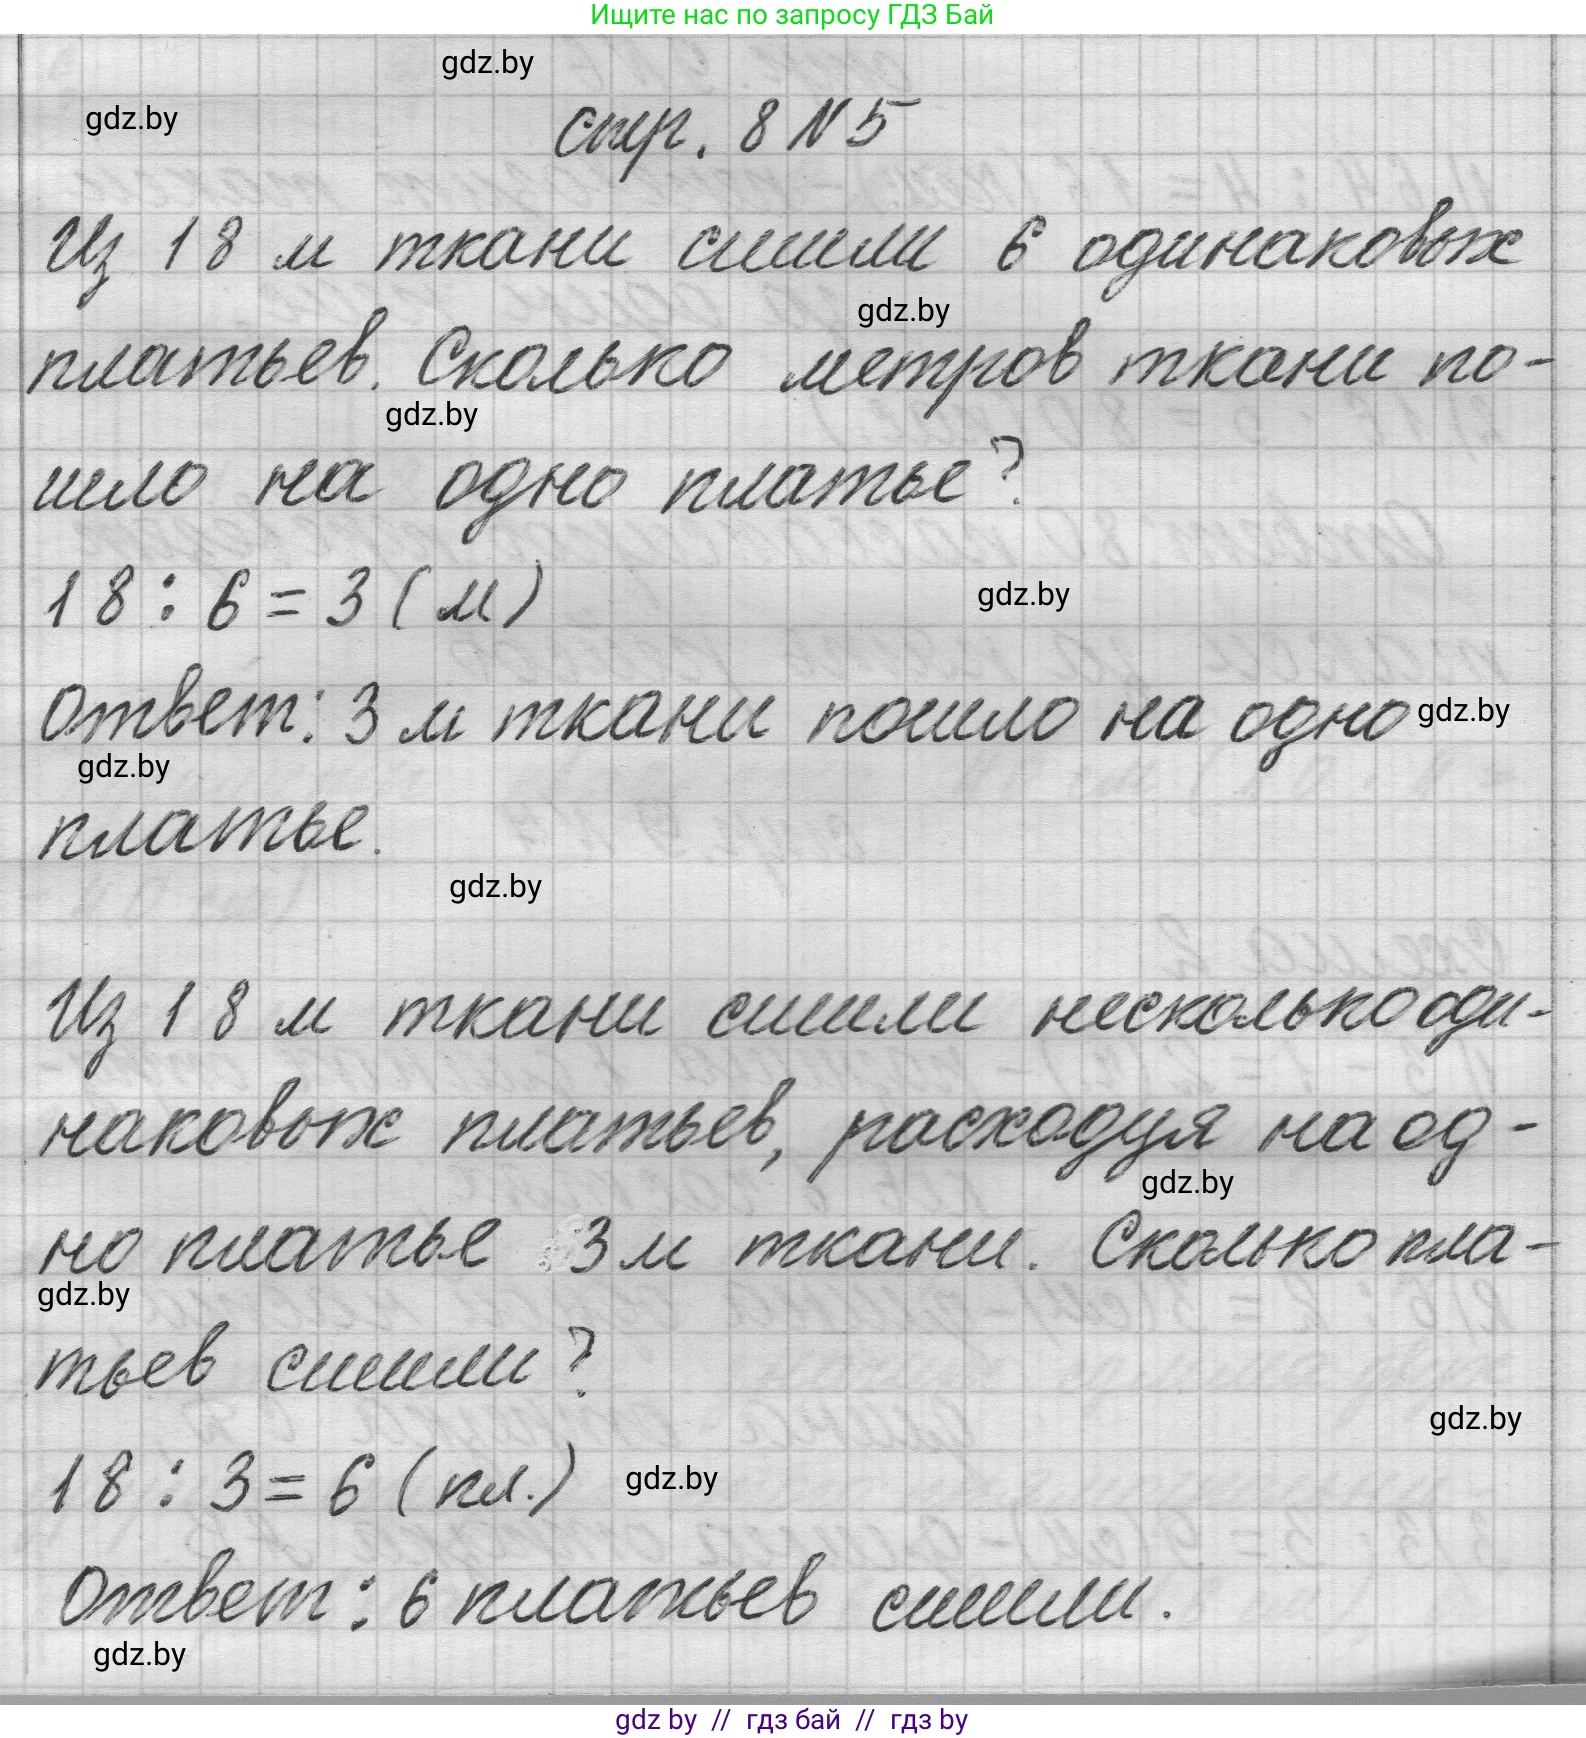 Ищите нас по запросу ГДЗ Бай
gdz.by
gdz.by
стр. 8 N 5
Из 18 м ткани сшили 6 одинаковых
gdz.by
платьев. Сколько метров ткани по-
gdz.by
шло на одно платье?
18 : 6 = 3 (м)
gdz.by
Ответ: 3 м ткани пошло на одно
gdz.by
gdz.by
платье.
gdz.by
Из 18 м ткани сшили несколько оди-
наковых платьев, расходуя на од-
gdz.by
но платье 3 м ткани. Сколько пла-
gdz.by
тьев сшили?
gdz.by
18 : 3 = 6 (пл.)
gdz.by
Ответ: 6 платьев сшили.
gdz.by
gdz by // гдз бай // гдз by